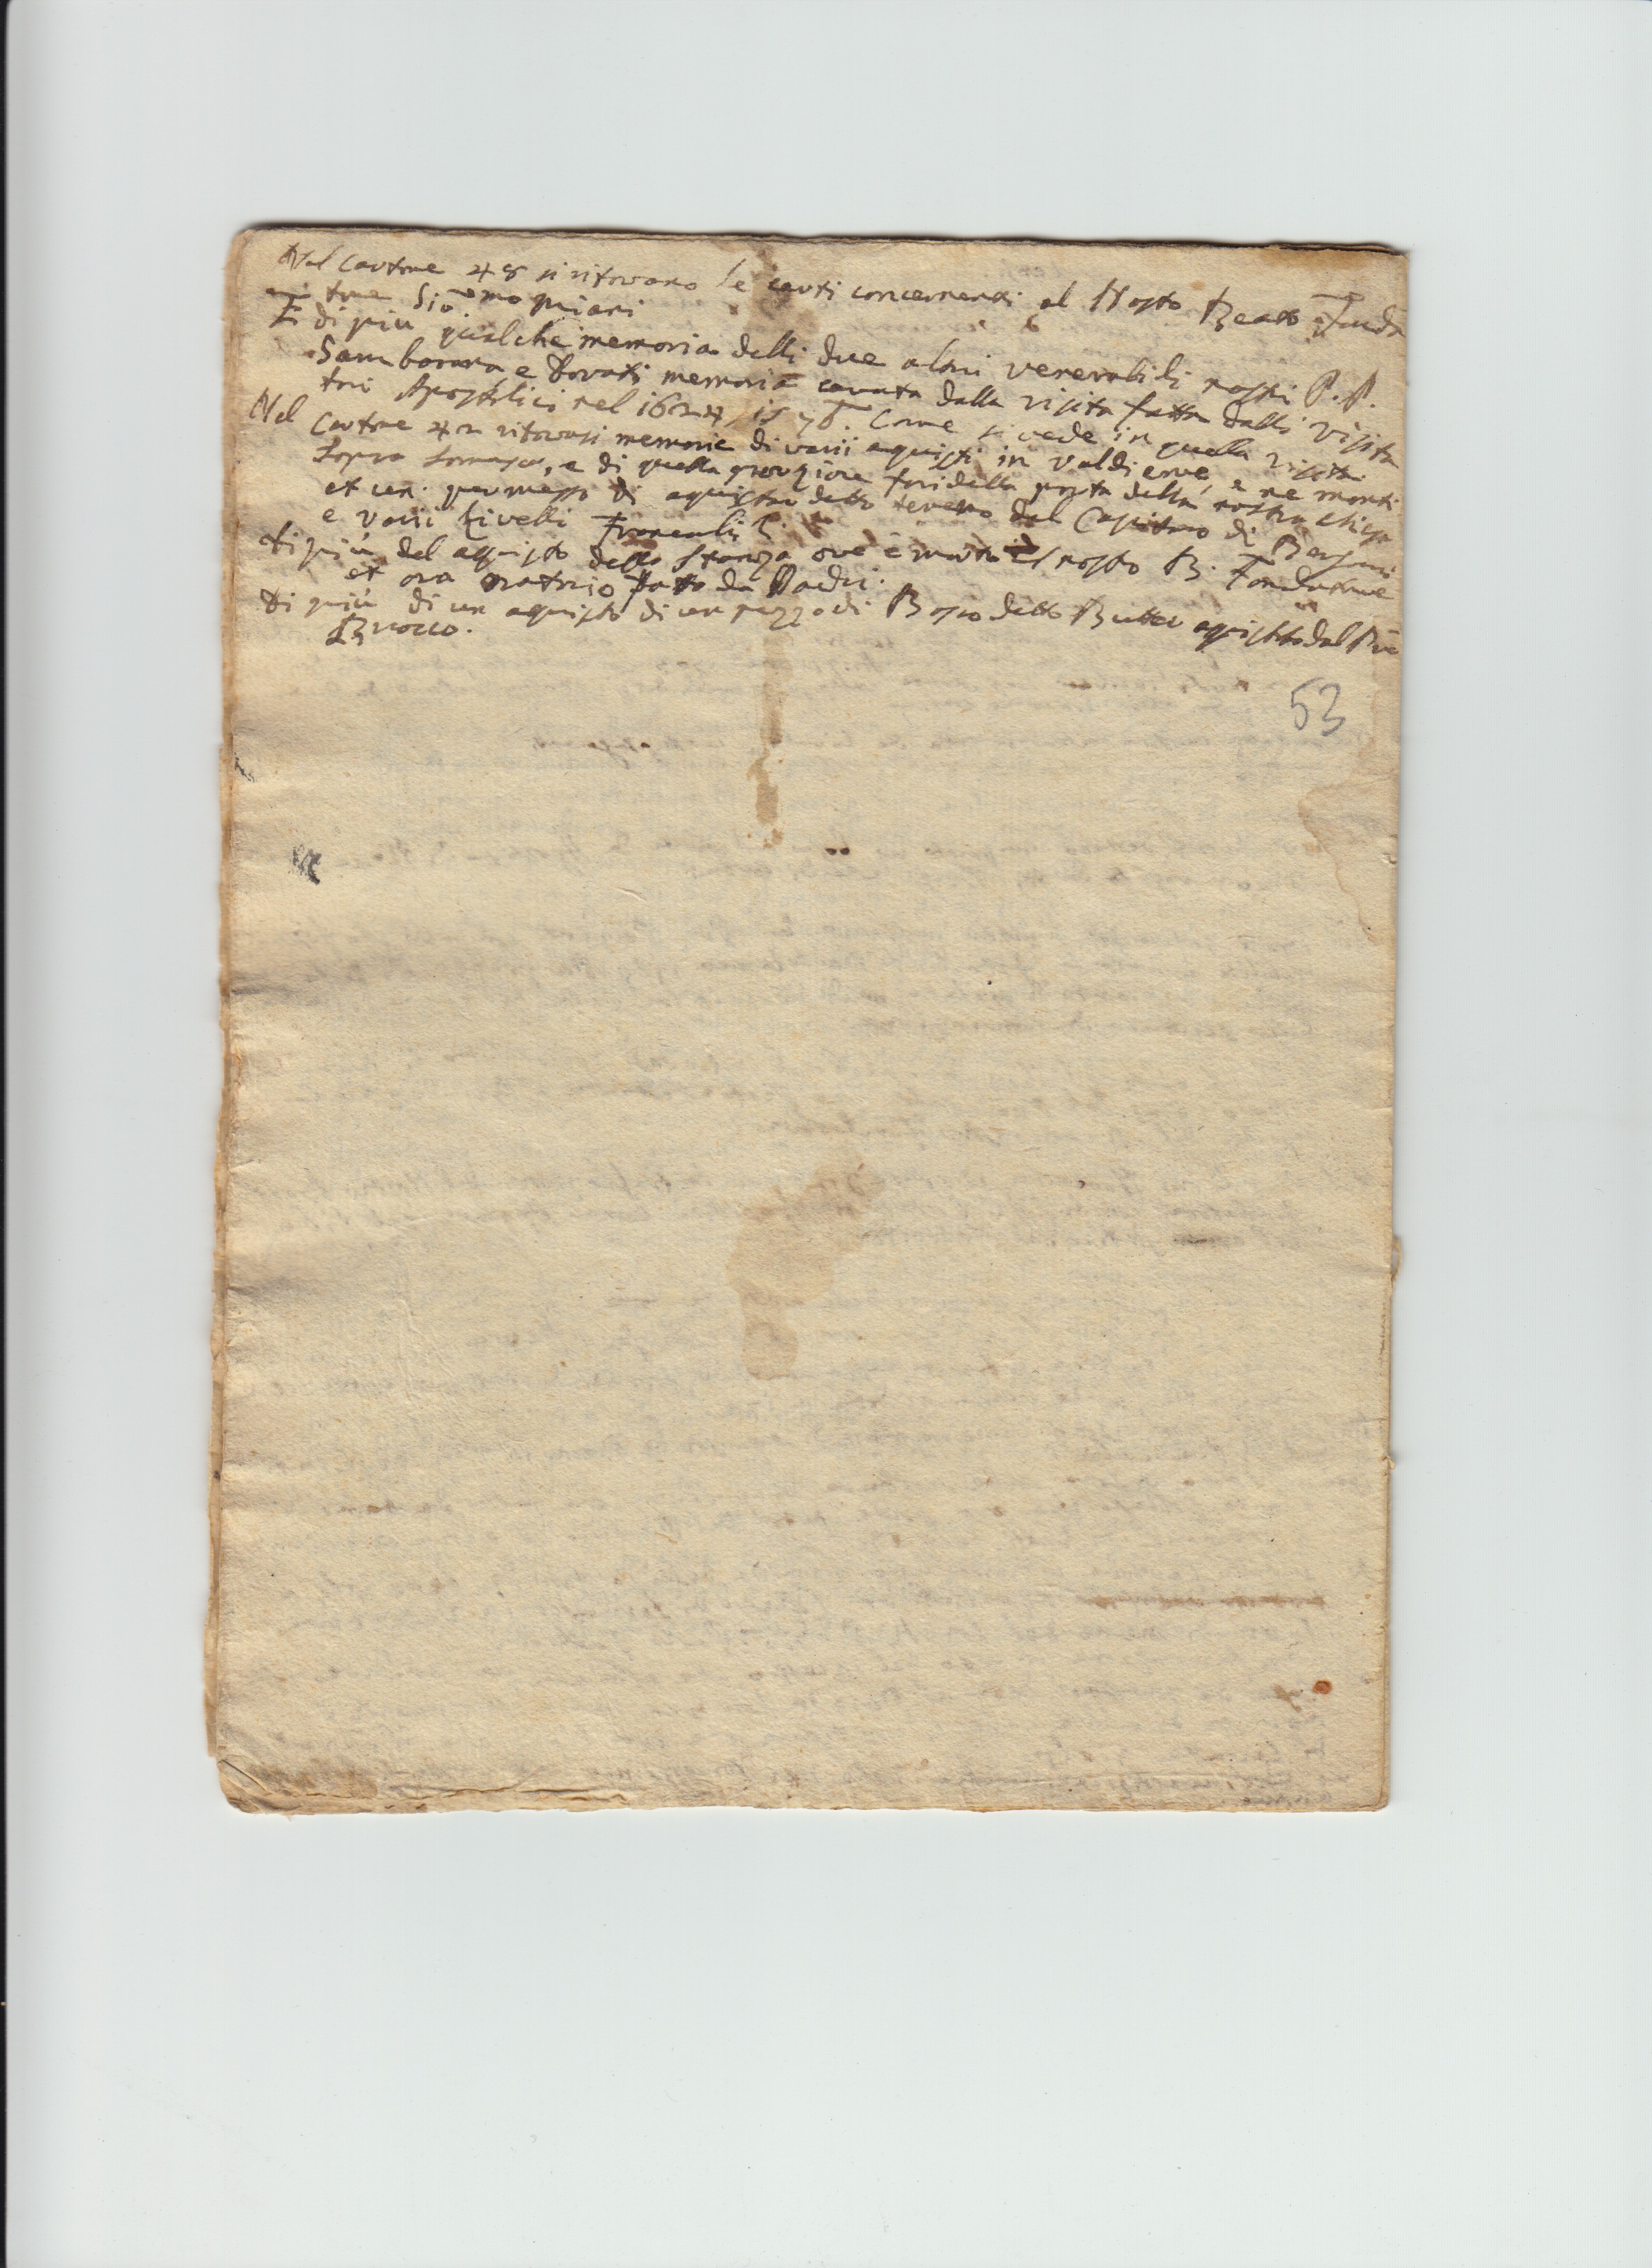 Nel cartone 48 si ritovano le carti concernenti al Nosto Beato Funda
tore Gio.mo miani
E di piu qualche memoria delli due altri venerabili nostri P. P.
Gambarana e Novati memoria cavata dalla visita fatta dalli visita
tori Apostolici nel 1624, Come si vede in quella visita
Nel cartone 42 ritovasi memorie di varii aquisti in Valdierve, e ne monti
sopra somasca, e di quella porzione fori della porta della nostra chiesa
et un permesso di aquistar detto tereno dal Capitano di Bergamo
e varii livelli Francabili.
di più del aquisto della stanza ove è morto il nosto B. Fondatore
et ora oratorio fatto da Padri.
di più di un aquisto di un pezzo di Bosco detto Butter aquistato dal
Brocco.
53